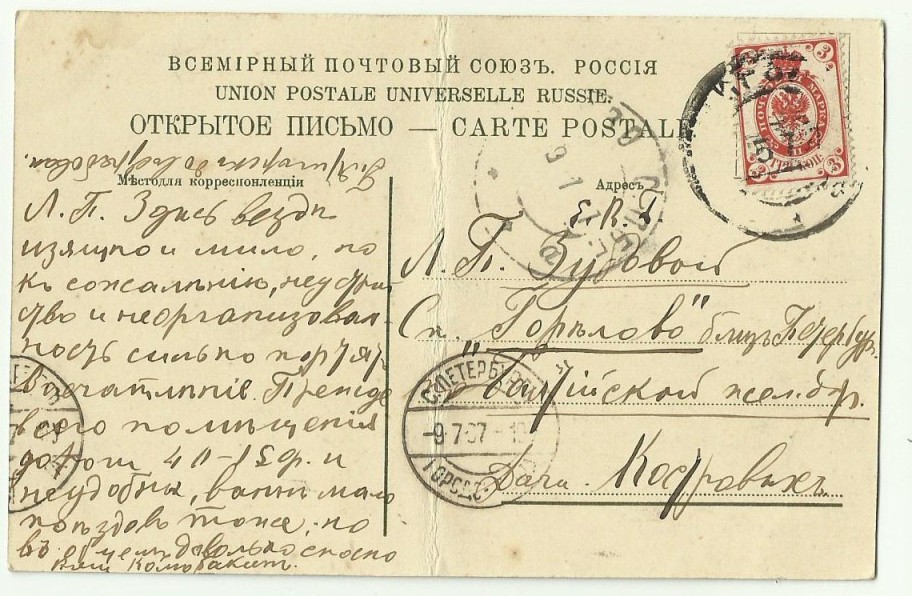 ВСЕМІРНЫЙ ПОЧТОВЫЙ СОЮЗЪ. РОССІЯ
UNION POSTALE UNIVERSELLE RUSSIE.
ОТКРЫТОЕ ПИСЬМО — CARTE POSTALE
Мѣсто для корреспонленціи
Л. П. Здѣсь вездѣ
изящно и мило, но
къ сожалѣнію, неустрой
ство и неорганизован
ность сильно портятъ
впечатлѣніе. Прежде
всего помѣщенія
дороги 4 п - 15 р. и
неудобны, ваннъ мало
поѣздовъ тоже, но
въ общемъ довольно сносно
Адресъ
Е. В. Б.
Л. П. Зубовой
Ст. "Горѣлово" близъ Петербур.
Балтійской жел. др.
Дача Костровыхъ
С.ПЕТЕРБУРГЪ
-9.7.07-
ГОРОДС.
3
3
ПОЧТОВАЯ МАРКА
3 КОП.
3
3